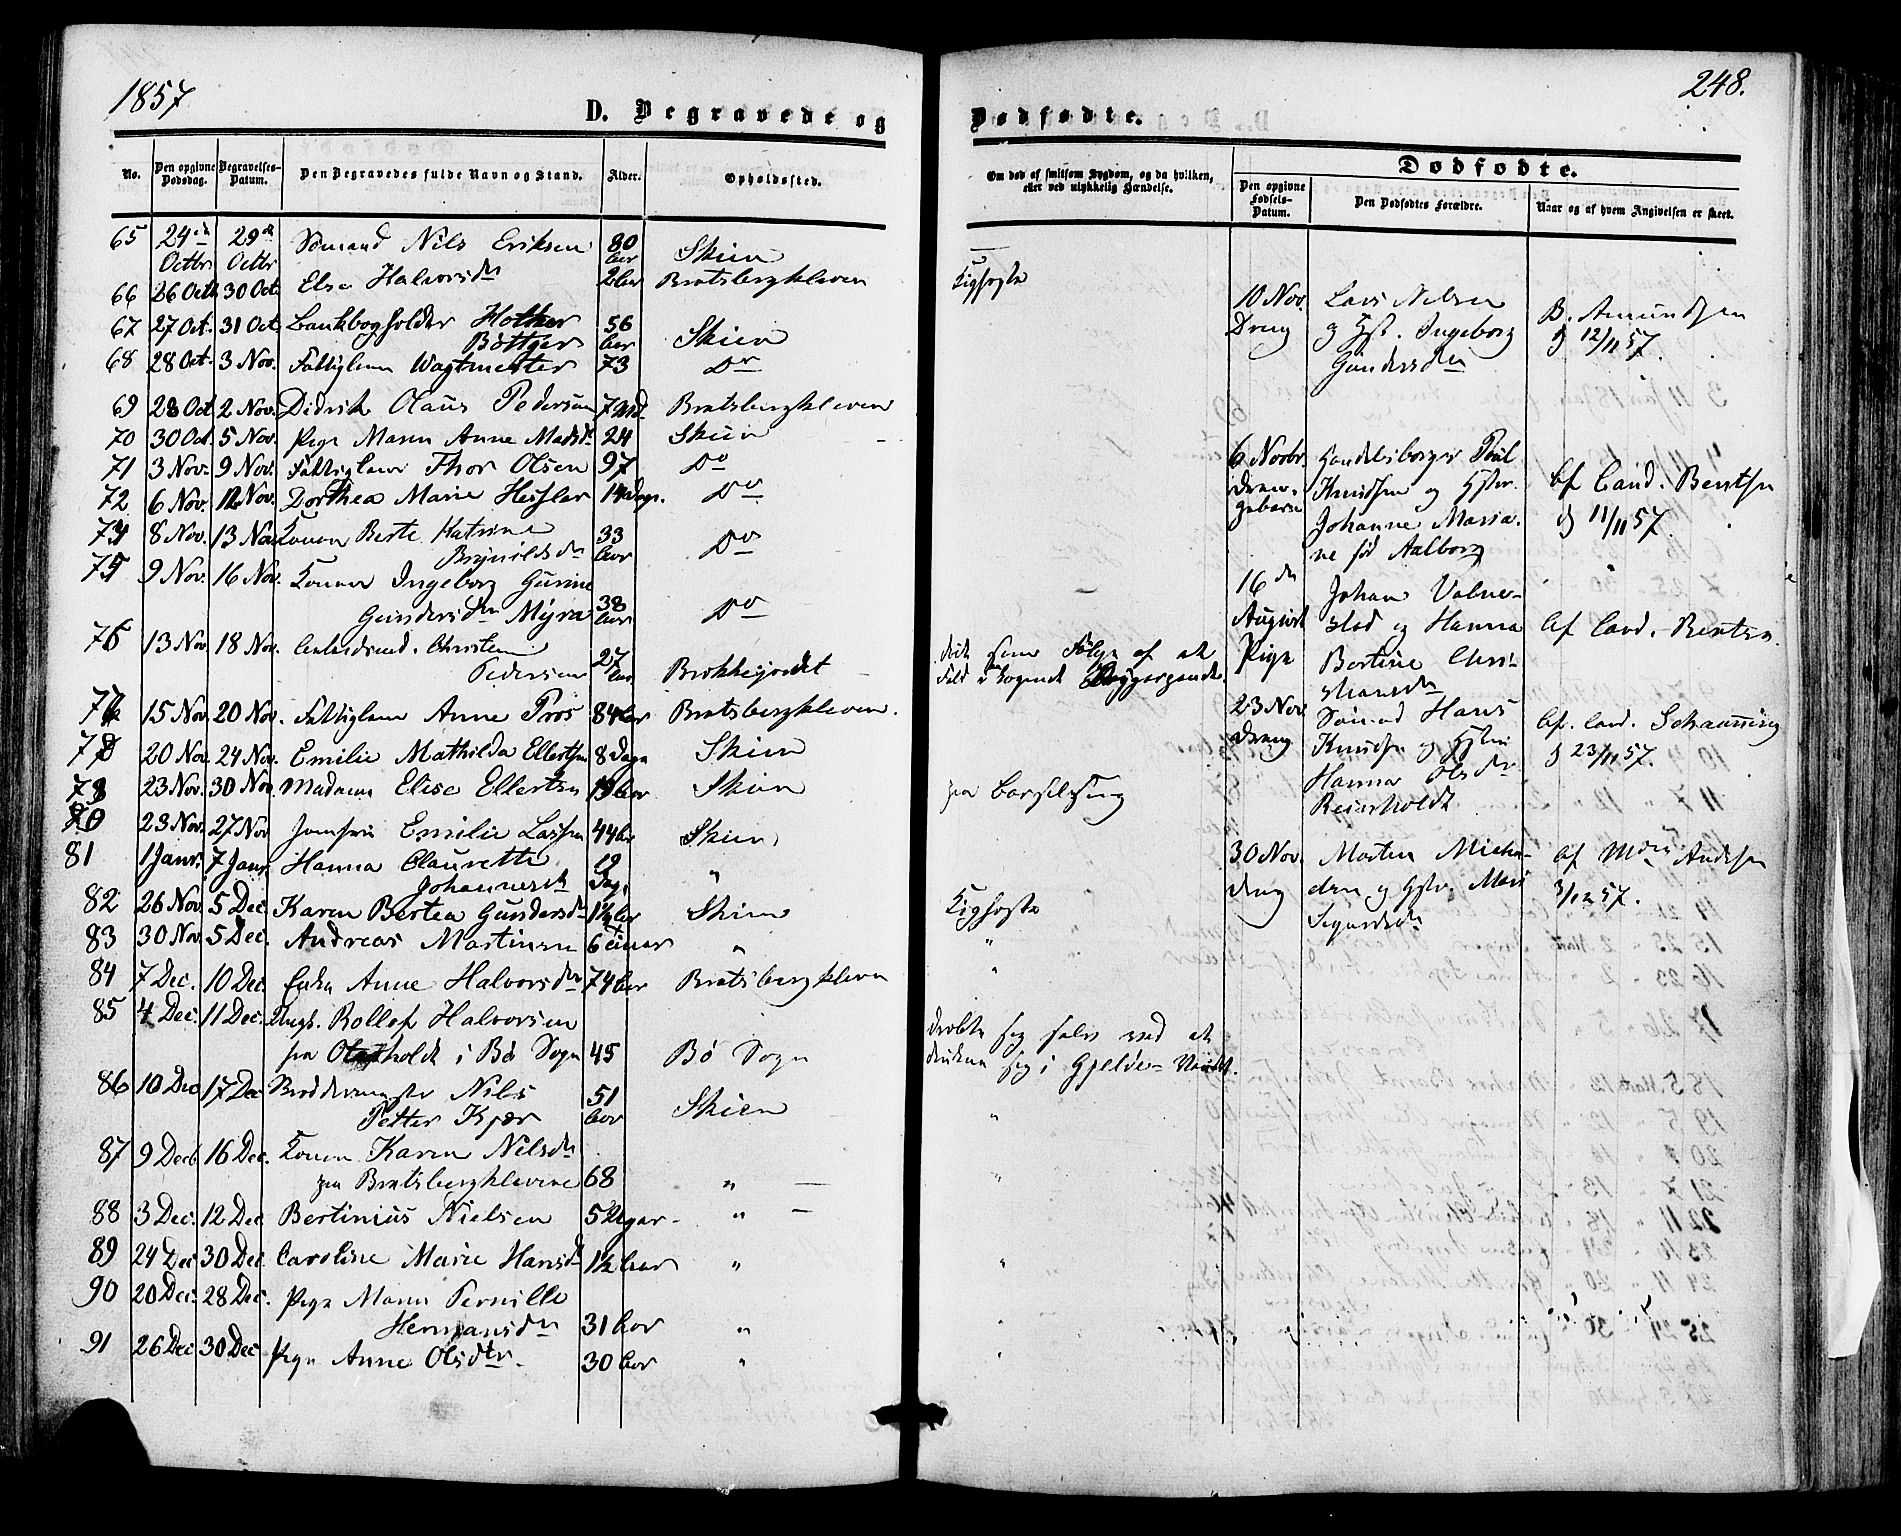 1857
D. Begravede og
No.
Den opgivne Dødsdag.
Begravelses-Datum.
Den Begravedes fulde Navn og Stand.
Alder.
Opholdssted.
65 24de Octbr 29de Octbr Sømand Nils Eriksen 80 Aar Skien
66 26 Octb 30 Oct. Else Halvorsdtr 2 Aar Bratsbergkleven
67 27 Oct. 31 Oct. Bankbogholder Hother
Bøttger 56 Aar Skien
68 28 Oct. 3 Nov. Fattiglem Wagtmester 73 Do
69 28 Oct 2 Nov. Didrik Olaus Pedersen 7 Md. Bratsbergkleven
70 30 Oct. 5 Nov. Pige Maren Anne Madsd. 24 Skien
71 3 Nov. 9 Nov. Fattiglem Thor Olsen 97 Do
72 6 Nov. 12 Nov. Dorthea Marie Hessler 14 Dage. Do
8 Nov. 13 Nov Konen Berte Katrine
Brynildsdr 33 Aar Do
75 9 Nov. 16 Nov. Konen Ingeborg Gurine
Gundersdtr Myra 38 Aar Do
76 13 Nov 18 Nov. Arbeidsmd. Christen
Pedersen 27 Aar
15 Nov. 20 Nov. Fattiglem Anne Pros 84 Aar Bratsbergkleven.
20 Nov. 24 Nov. Emilie Mathilda Ellertsen 8 Dage Skien
23 Nov. 30 Nov. Madame Elise Ellertsen Aar Skien
23 Nov. 27 Nov Jomfru Emilie Lassen 44 Aar Skien
81 1 Janr. 7 Janr Hanna Claurette
Johannesdr 19 Dag. "
82 26 Nov 5 Dec. Karen Bertea Gundersdr 1½ Aar Skien
83 30 Nov. 5 Dec. Andreas Martinsen 6 "
84 7 Dec. 10 Dec. Enke Anne Halvorsdtr 74 Aar Bratsbergkleven
85 4 Dec. 11 Dec. Ungk. Rollef Halvorsen
fra i Bø Sogn 45 Bø Sogn
86 10 Dec 17 Dec Nils
Petter Kjær 51 Aar Skien
87 9 Decb 16 Dec. Konen Karen Nilsdtr
paa Bratsbergklevene 68 "
88 3 Dec. 12 Dec Bertinius Nielsen 5 Uger "
89 24 Dec 30 Dec. Caroline Marie Hansdr 1½ Aar "
90 20 Dec. 28 Dec. Pige Maren Pernille
Hermansdtr 31 Aar "
91 26 Dec 30 Dec Pige Anne Olsdtr. 30 Aar "
248.
Dødfødte.
Om død af smitsom Sygdom, og da hvilken,
eller ved ulykkelig Hændelse.
Dødfødte.
Den opgivne Fødsels-Datum.
Den Dødfødtes Forældre.
Naar og af hvem Angivelsen er skeet.
Kighoste
10 Nov. Dreng
Lars Nilsen
og Hst. Ingeborg
Gundersdtr
B. Amundsen
d 12/11 57.
6 Novbr.
Handelsborger Poul
Knudsen og Hstr.
Johanne Maria-
ne fød Aalborg
Af Cand. Bentsen
d 11/11 57.
16de August Pige
Johan Valne-
stad og Hanna
Bertine Chri-
stiansdtr
Af Cand. Bentsen
døde som Følge af et
Fald i kogende
23 Nov Dreng
Sømad Hans
Knudsen og Hstru
Hanna Olsdr
Reierholdt
Af. Cand. Schanning
d 23/11 57.
paa Barselseng
30 Nov. Dreng
Morten Micha-
elsen og Hstr. Mari
Sigurdsdtr
af Mdm Andersen
3/12 57.
Kighoste
"
"
dræbte sig selv ved at
drukne sig i Gjelde-Vandet.
"
"
"
"
"